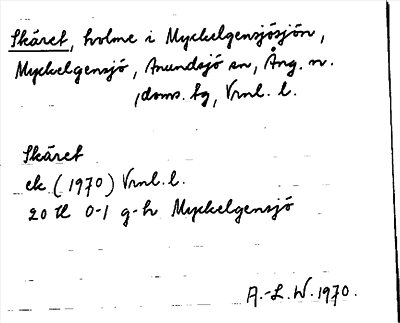 Skäret, holme i Myckelgensjösjön,
Myckelgensjö, Anundsjö sn, Ång. n.
,doms. tg, Vrnl. l.
Skäret
ek (1970) Vrnl. l.
20 H 0-1 g-h Myckelgensjö
A.-L. W. 1970.